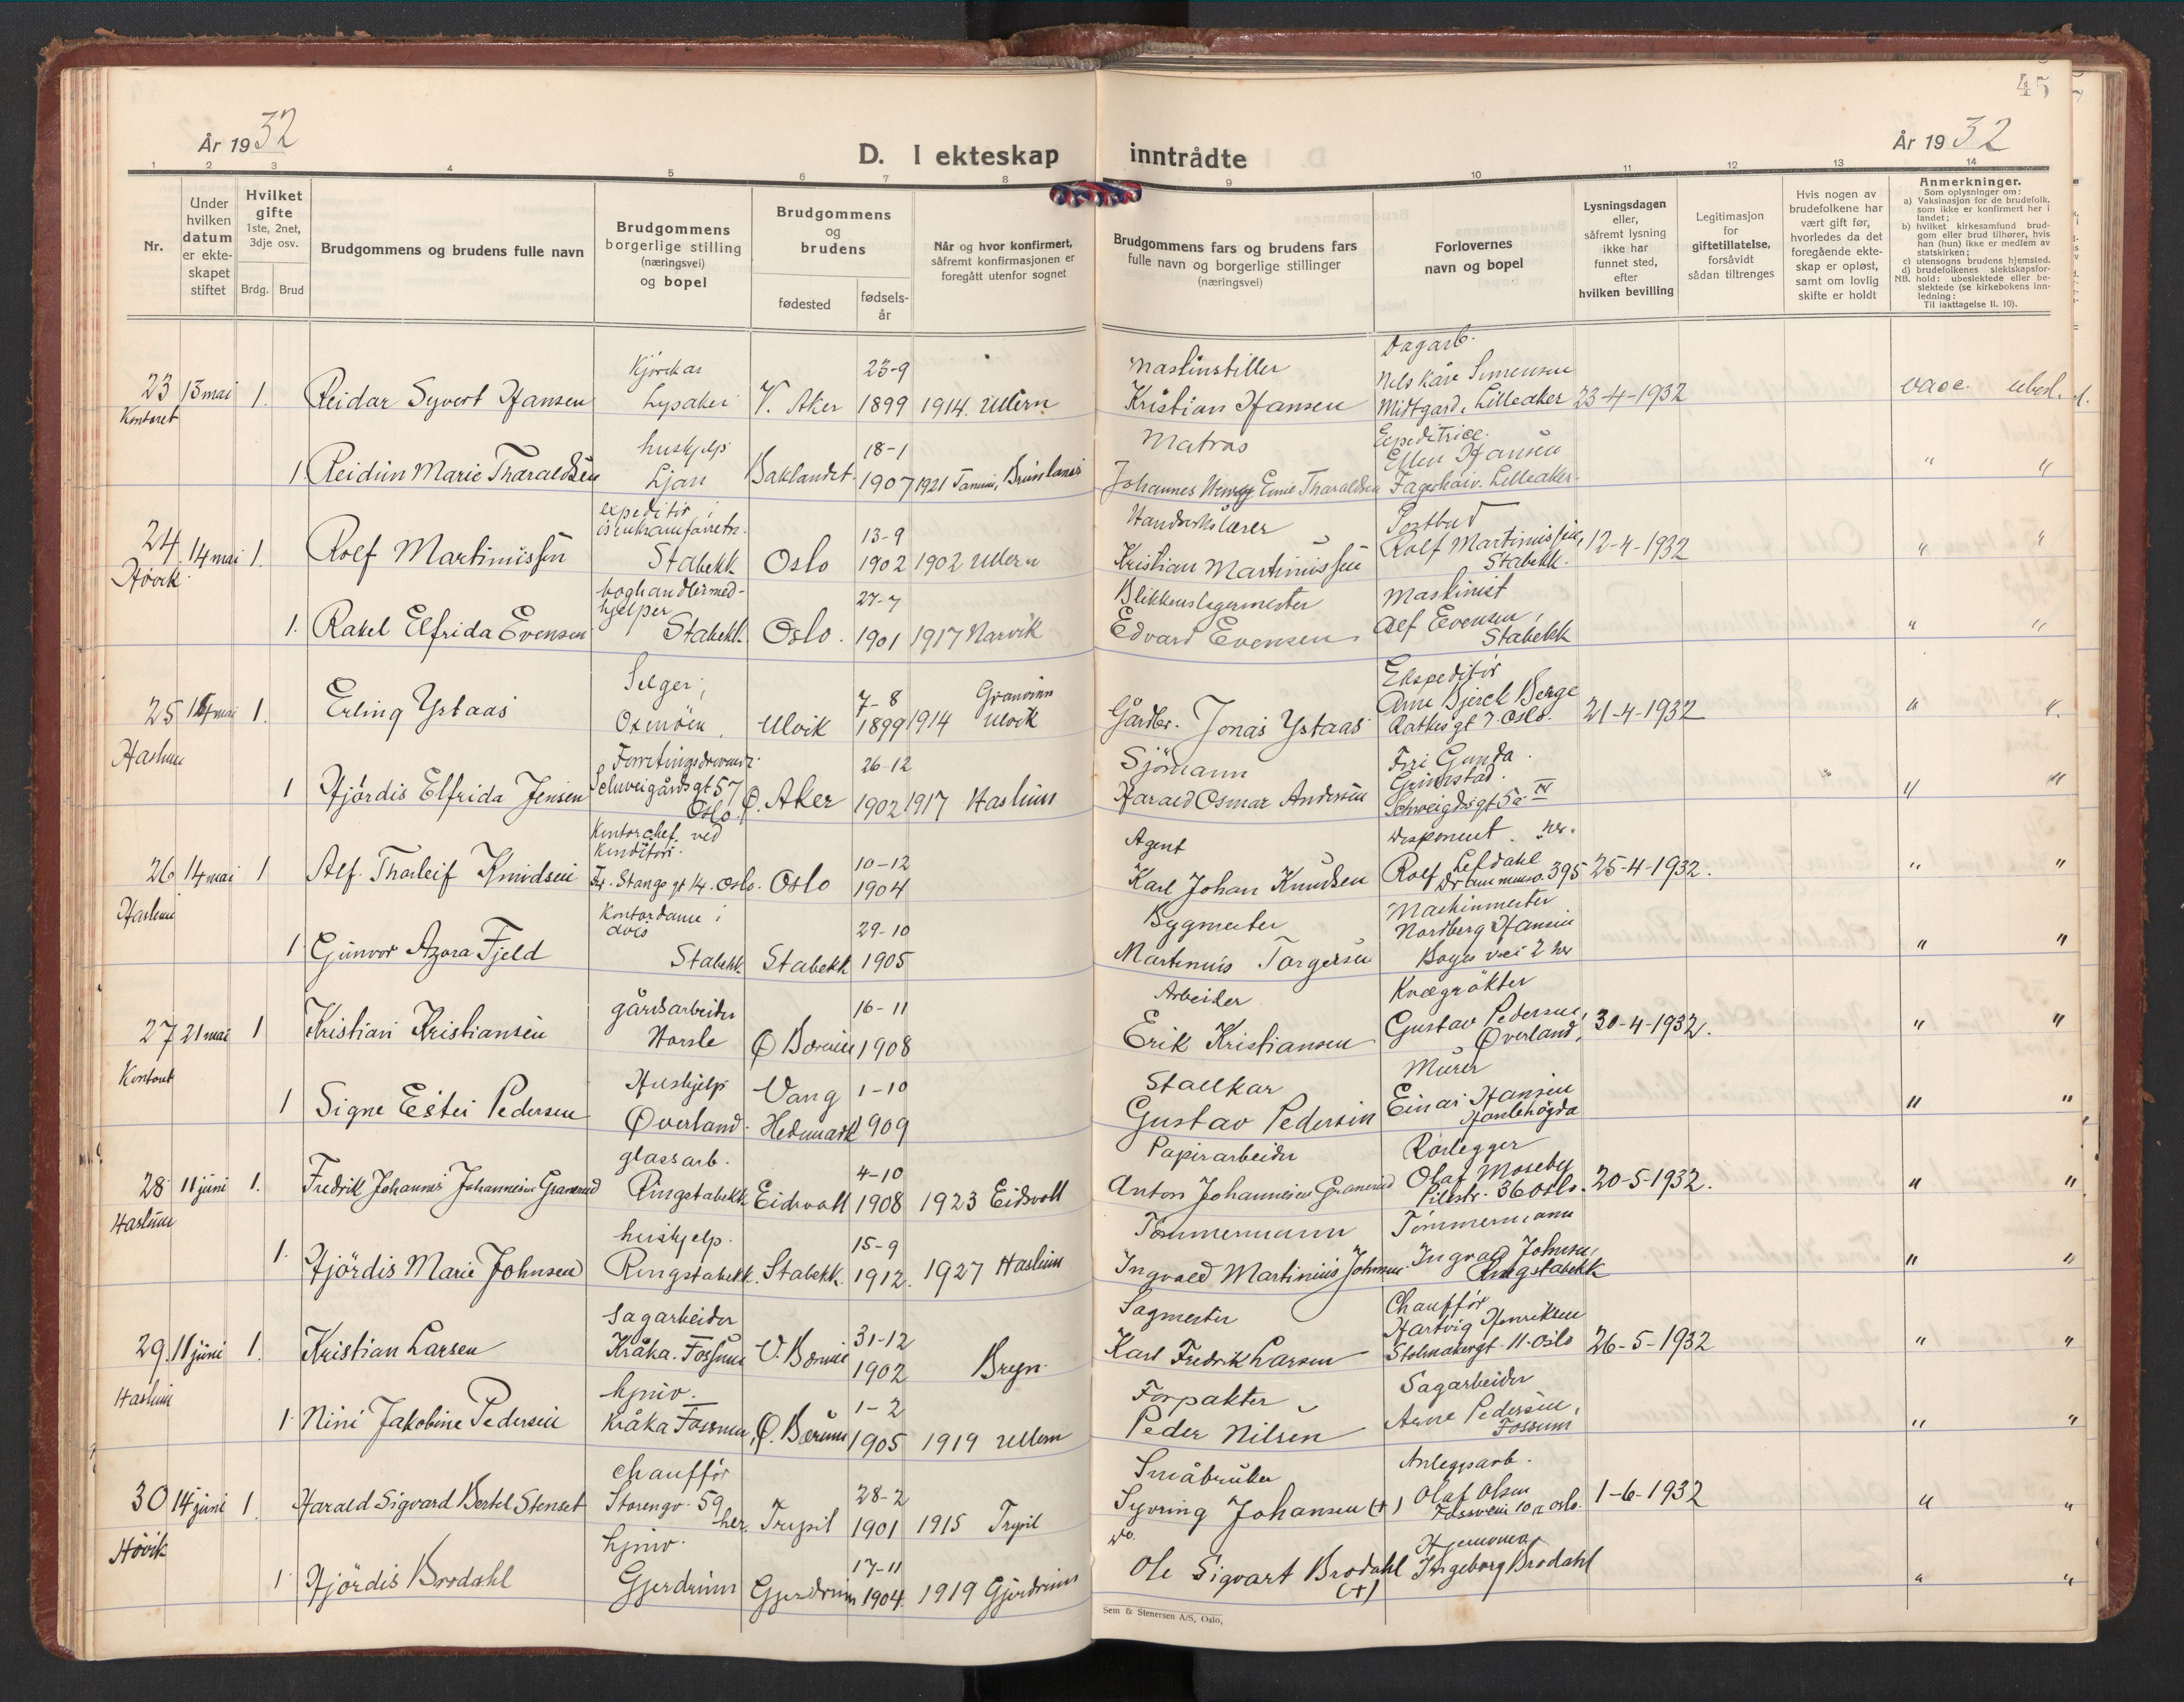 År 1932
D. I ekteskap inntrådte
År 1932
45
1 2 3 4 5 6 7 8 9 10 11 12 13 14
Nr.
Under hvilken datum er ekteskapet stiftet
Hvilket gifte 1ste, 2net, 3dje osv.
Brdg. Brud
Brudgommens og brudens fulle navn
Brudgommens borgerlige stilling (næringsvei) og bopel
Brudgommens og brudens
fødested
fødsels-år
Når og hvor konfirmert, såfremt konfirmasjonen er foregått utenfor sognet
Brudgommens fars og brudens fars fulle navn og borgerlige stillinger (næringsvei)
Forlovernes navn og bopel
Lysningsdagen eller, såfremt lysning ikke har funnet sted, efter hvilken bevilling
Legitimasjon for giftetillatelse, forsåvidt sådan tiltrenges
Hvis nogen av brudefolkene har vært gift før, hvorledes da det foregående ekteskap er opløst, samt om lovlig skifte er holdt
Anmerkninger.
Som oplysninger om:
a) Vaksinasjon for de brudefolk, som ikke er konfirmert her i landet;
b) hvilket kirkesamfund brudgom eller brud tilhører, hvis han (hun) ikke er medlem av statskirken;
c) utensogns brudens hjemsted.
d) brudefolkenes slektskapsforhold: ubeslektede eller beslektede (se kirkebokens innledning:
NB.
Til iakttagelse II. 10).
23 13 mai 1. Reidar Syvert Hansen Kjørekar Lysaker V. Aker 23-9 1899 1914. Ullern Maskinstiller Kristian Hansen Dagarb. Nils Kåre Simensen Midtgard, Lilleaker 23-4-1932 vacc. ubesl.
Kontoret
1 Reidun Marie Tharaldsen huskjelp Ljan Baklandet 18-1 1907 1921 Tanum, Brunlanes Matros Johannes Henry Emil Tharaldsen Expeditrice Ellen Hansen Lilleaker. " "
24 14 mai 1. Rolf Martinussen expeditør i isenkramforretn. Stabekk Oslo 13-9 1902 1902 Ullern Handverkslærer Kristian Martinussen Postbud Rolf Martinussen, Stabekk. 12-4-1932 " "
Høvik
1. Rakel Elfrida Evensen boghandlermedhjelper Stabekk Oslo. 27-7 1901 1917 Narvik Blikkenslagermester Edvard Evensen Maskinist Alf Evensen, Stabekk " "
25 14 mai 1. Erling Ystaas Selger, Oksnøen Ulvik 7-8 1899 1914 Granvinn Ulvik Gårdbr. Jonas Ystaas Ekspeditør Arne Bjerck Berge Rathkes gt 7. Oslo. 21-4-1932 " "
Haslum
1 Hjördis Elfrida Jensen Forretningsdrivende Schweigårdsgt 57 Oslo Ø. Aker 26-12 1902 1917 Haslum Sjömann Harald Osmar Andersen Gunda Grimstad. Schweigdsgt 5a IV " "
26 14 mai 1 Alf Thorleif Knudsen Kontorchef ved Konditori Fr. Stangs gt 14. Oslo. Oslo 10-12 1904 Agent Karl Johan Knudsen Disponent Rolf Lefdahl Drammensv. 395 her. 25-4-1932. " "
Haslum
1 Gunvor Azora Fjeld Kontordame i avis Stabekk Stabekk 29-10 1905 Bygmester Martinius Torgersen Maskinmester Nordberg Hansen vei 2 her " "
27 21 mai 1 Kristian Kristiansen gårdsarbeider Horsle Ø Bærum 16-11 1908 Arbeider Erik Kristiansen Kvægrøkter Gustav Pedersen, Øverland, 30-4-1932. " "
Kontoret
1 Signe Ester Pedersen Huskjelp Øverland. Vang Hedmark 1-10 1909 Stallkar Gustav Pedersen Murer Einar Hansen Hanlehøgda " "
28 11 juni 1. Fredrik Johannes Johannesen Granerud glassarb. Ringstabekk Eidsvoll 4-10 1908 1923 Eidsvoll Papirarbeider Anton Johannesen Granerud Rørlegger Olaf Moseby Pilestr. 36 Oslo. 20-5-1932. " "
Haslum
1. Hjördis Marie Johnsen huskjelp. Ringstabekk. Stabekk. 15-9 1912. 1927 Haslum Tömmermann Ingvald Martinius Johnsen Tömmermann Ingvald Johnsen, Ringstabekk " "
29. 11 juni 1. Kristian Larsen Sagarbeider Kråka. Fossum V. Bærum 31-12 1902 Bryn Sagmester Karl Fredrik Larsen Chauffør Hartvig Henriksen 11 Oslo 26-5-1932 " "
Haslum
1. Nini Jakobine Pedersen hjmv. Kråka Fossum, Ø. Bærum 1-2 1905 1919 Ullern Forpakter Peder Nilsen Sagarbeider Arne Pedersen, Fossum " "
30 14 juni 1. Harald Sigvard Bertel Stenset chauffør Storengv. 59 her. Trysil 28-2 1901 1915 Trysil Småbruker Syvring Johansen (+) Anleggsarb. Olaf Olsen Fossveien 10 Oslo. 1-6-1932 " "
Høvik
1 Hjördis Brodahl hjmv. Gjerdrum Gjerdrum 17-11 1904. 1919 Gjerdrum do. Ole Sigvart Brodahl (+) Ingeborg Brodahl " "
Sem & Stenersen A/S, Oslo,